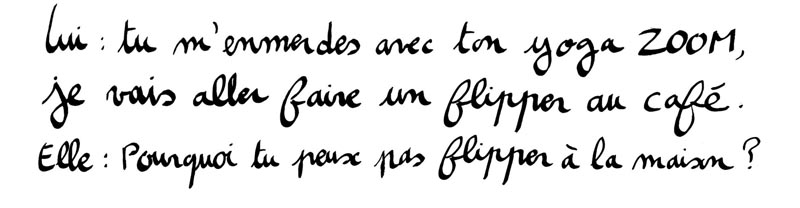 Lui : tu m'enmerdes avec ton yoga ZOOM,
je vais aller faire un flipper au café.
Elle : Pourquoi tu peux pas flipper à la maison ?